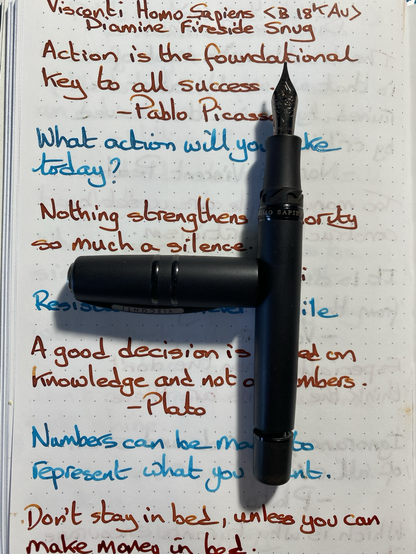 Visconti Homo Sapiens <B 18k Au>
Diamine Fireside Snug
Action is the foundational
key to all success
-Pablo Picasso
What action will you
today?
Nothing strengthens
so much a silence.
A good decision is
knowledge and not
-Plato
Numbers can be to
represent what you
Don't stay in bed, unless you can
make money in bed.
VISCONTI